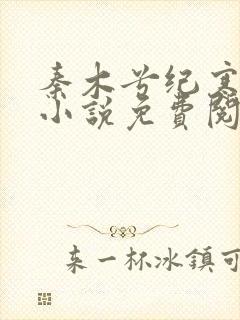 秦木兮纪寒
小說免費閱
来一杯冰鎮可